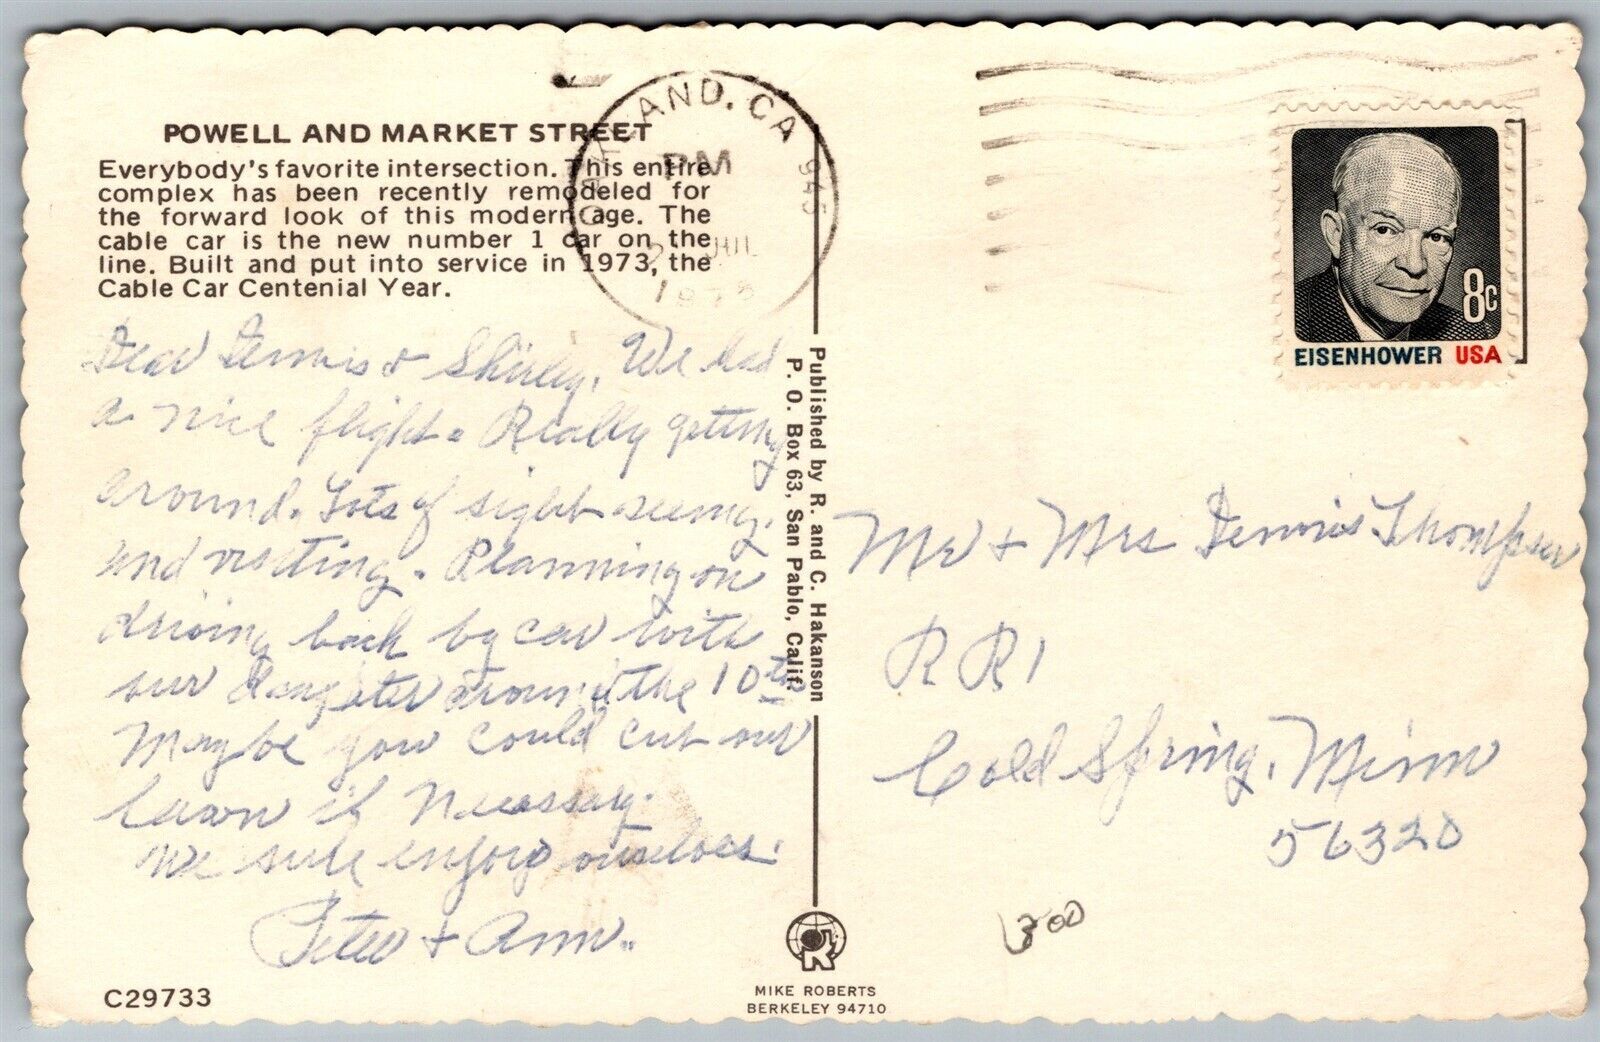 POWELL AND MARKET STREET
Everybody's favorite intersection. This entire
complex has been recently remodeled for
the forward look of this modern age. The
cable car is the new number 1 car on the
line. Built and put into service in 1973, the
Cable Car Centenial Year.
OAKLAND, CA 945
PM
JUL
1975
8c
EISENHOWER USA
Dear Dennis & Shirley, We had
a nice flight. Really getting
around. Lots of sight seeing.
and visiting. Planning on
driving back by car with
our daughter around the 10th
Maybe you could cut our
lawn if necessary.
We sure enjoy ourselves.
Peter + Ann.
Published by R. and C. Hakanson
P. O. Box 63, San Pablo, Calif.
Mr + Mrs Dennis Thompson
R R 1
Cold Spring, Minn
56320
300
C29733
MIKE ROBERTS
BERKELEY 94710